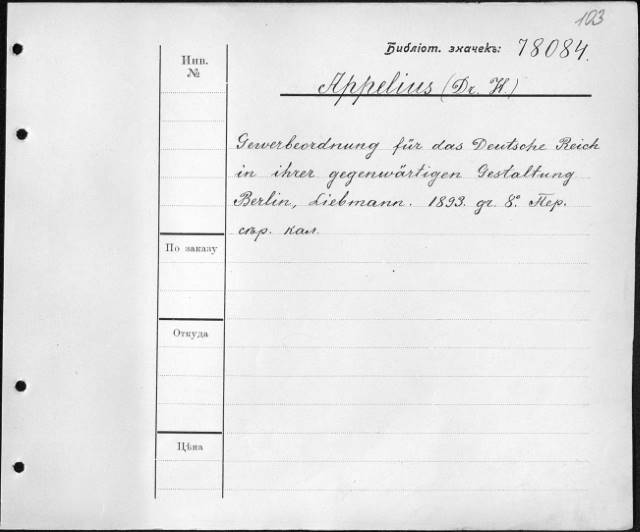 103
Библіот. значекъ: 78084.
Инв.
№
Appelius (Dr. H.)
Gewerbeordnung für das Deutsche Reich
in ihrer gegenwärtigen Gestaltung
Berlin, Liebmann. 1893. gr. 8.° Пер.
сѣр. кал.
По заказу
Откуда
Цѣна